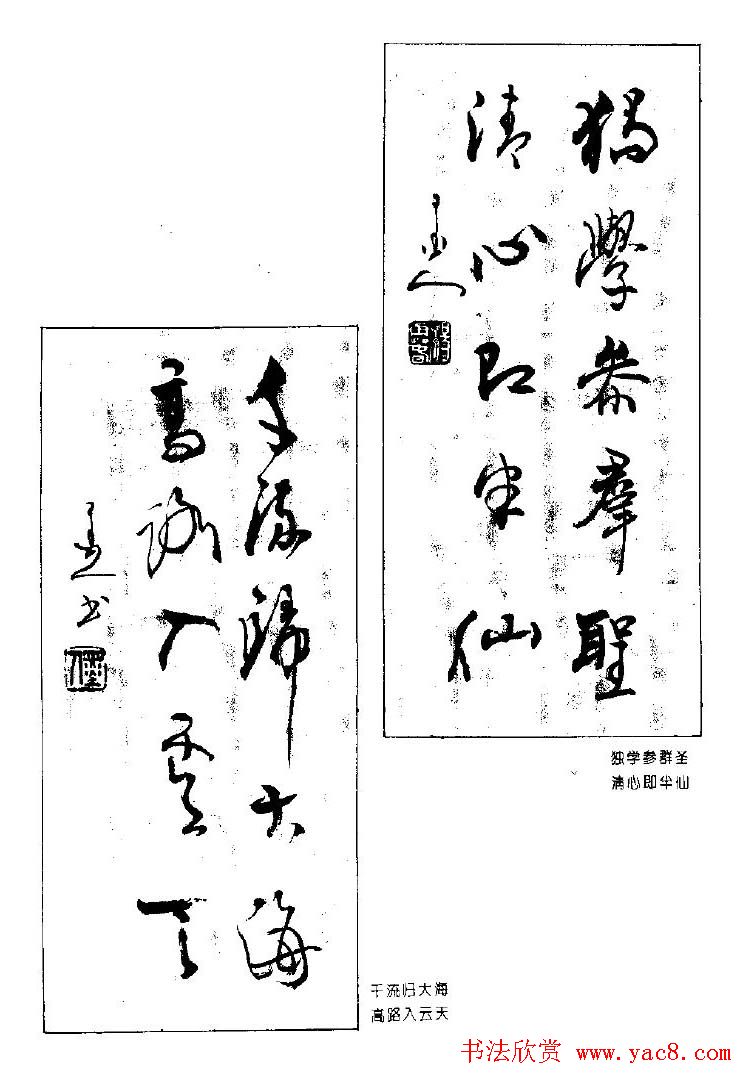 獨學參羣聖
清心即半仙
独学参群圣
清心即半仙
千流歸大海
高路入雲天
书
千流归大海
高路入云天
书法欣赏 www.yac8.com